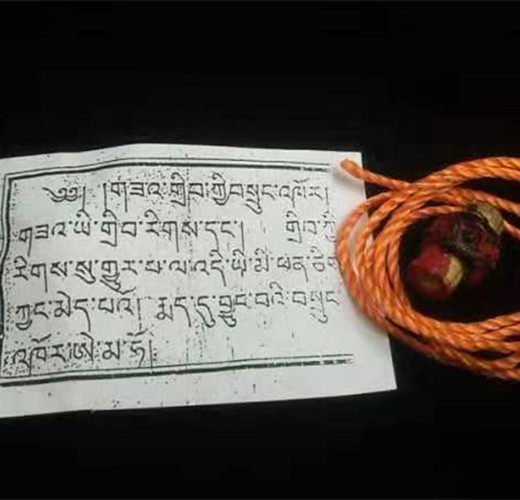 ༄༅། །གཟའ་གྲིབ་ཀྱི་བསྲུང་འཁོར།
གཟའ་ཡི་གྲིབ་རིགས་དང་། གྲིབ་ཀྱི
རིགས་སུ་གྱུར་པ་ལ་འདི་ཡི་མི་ཕན་ཅིག
ཀྱང་མེད་པའོ། མད་དུ་བྱུང་བའི་བསྲུང
འཁོར་ཨེ་མ་ཧོ།